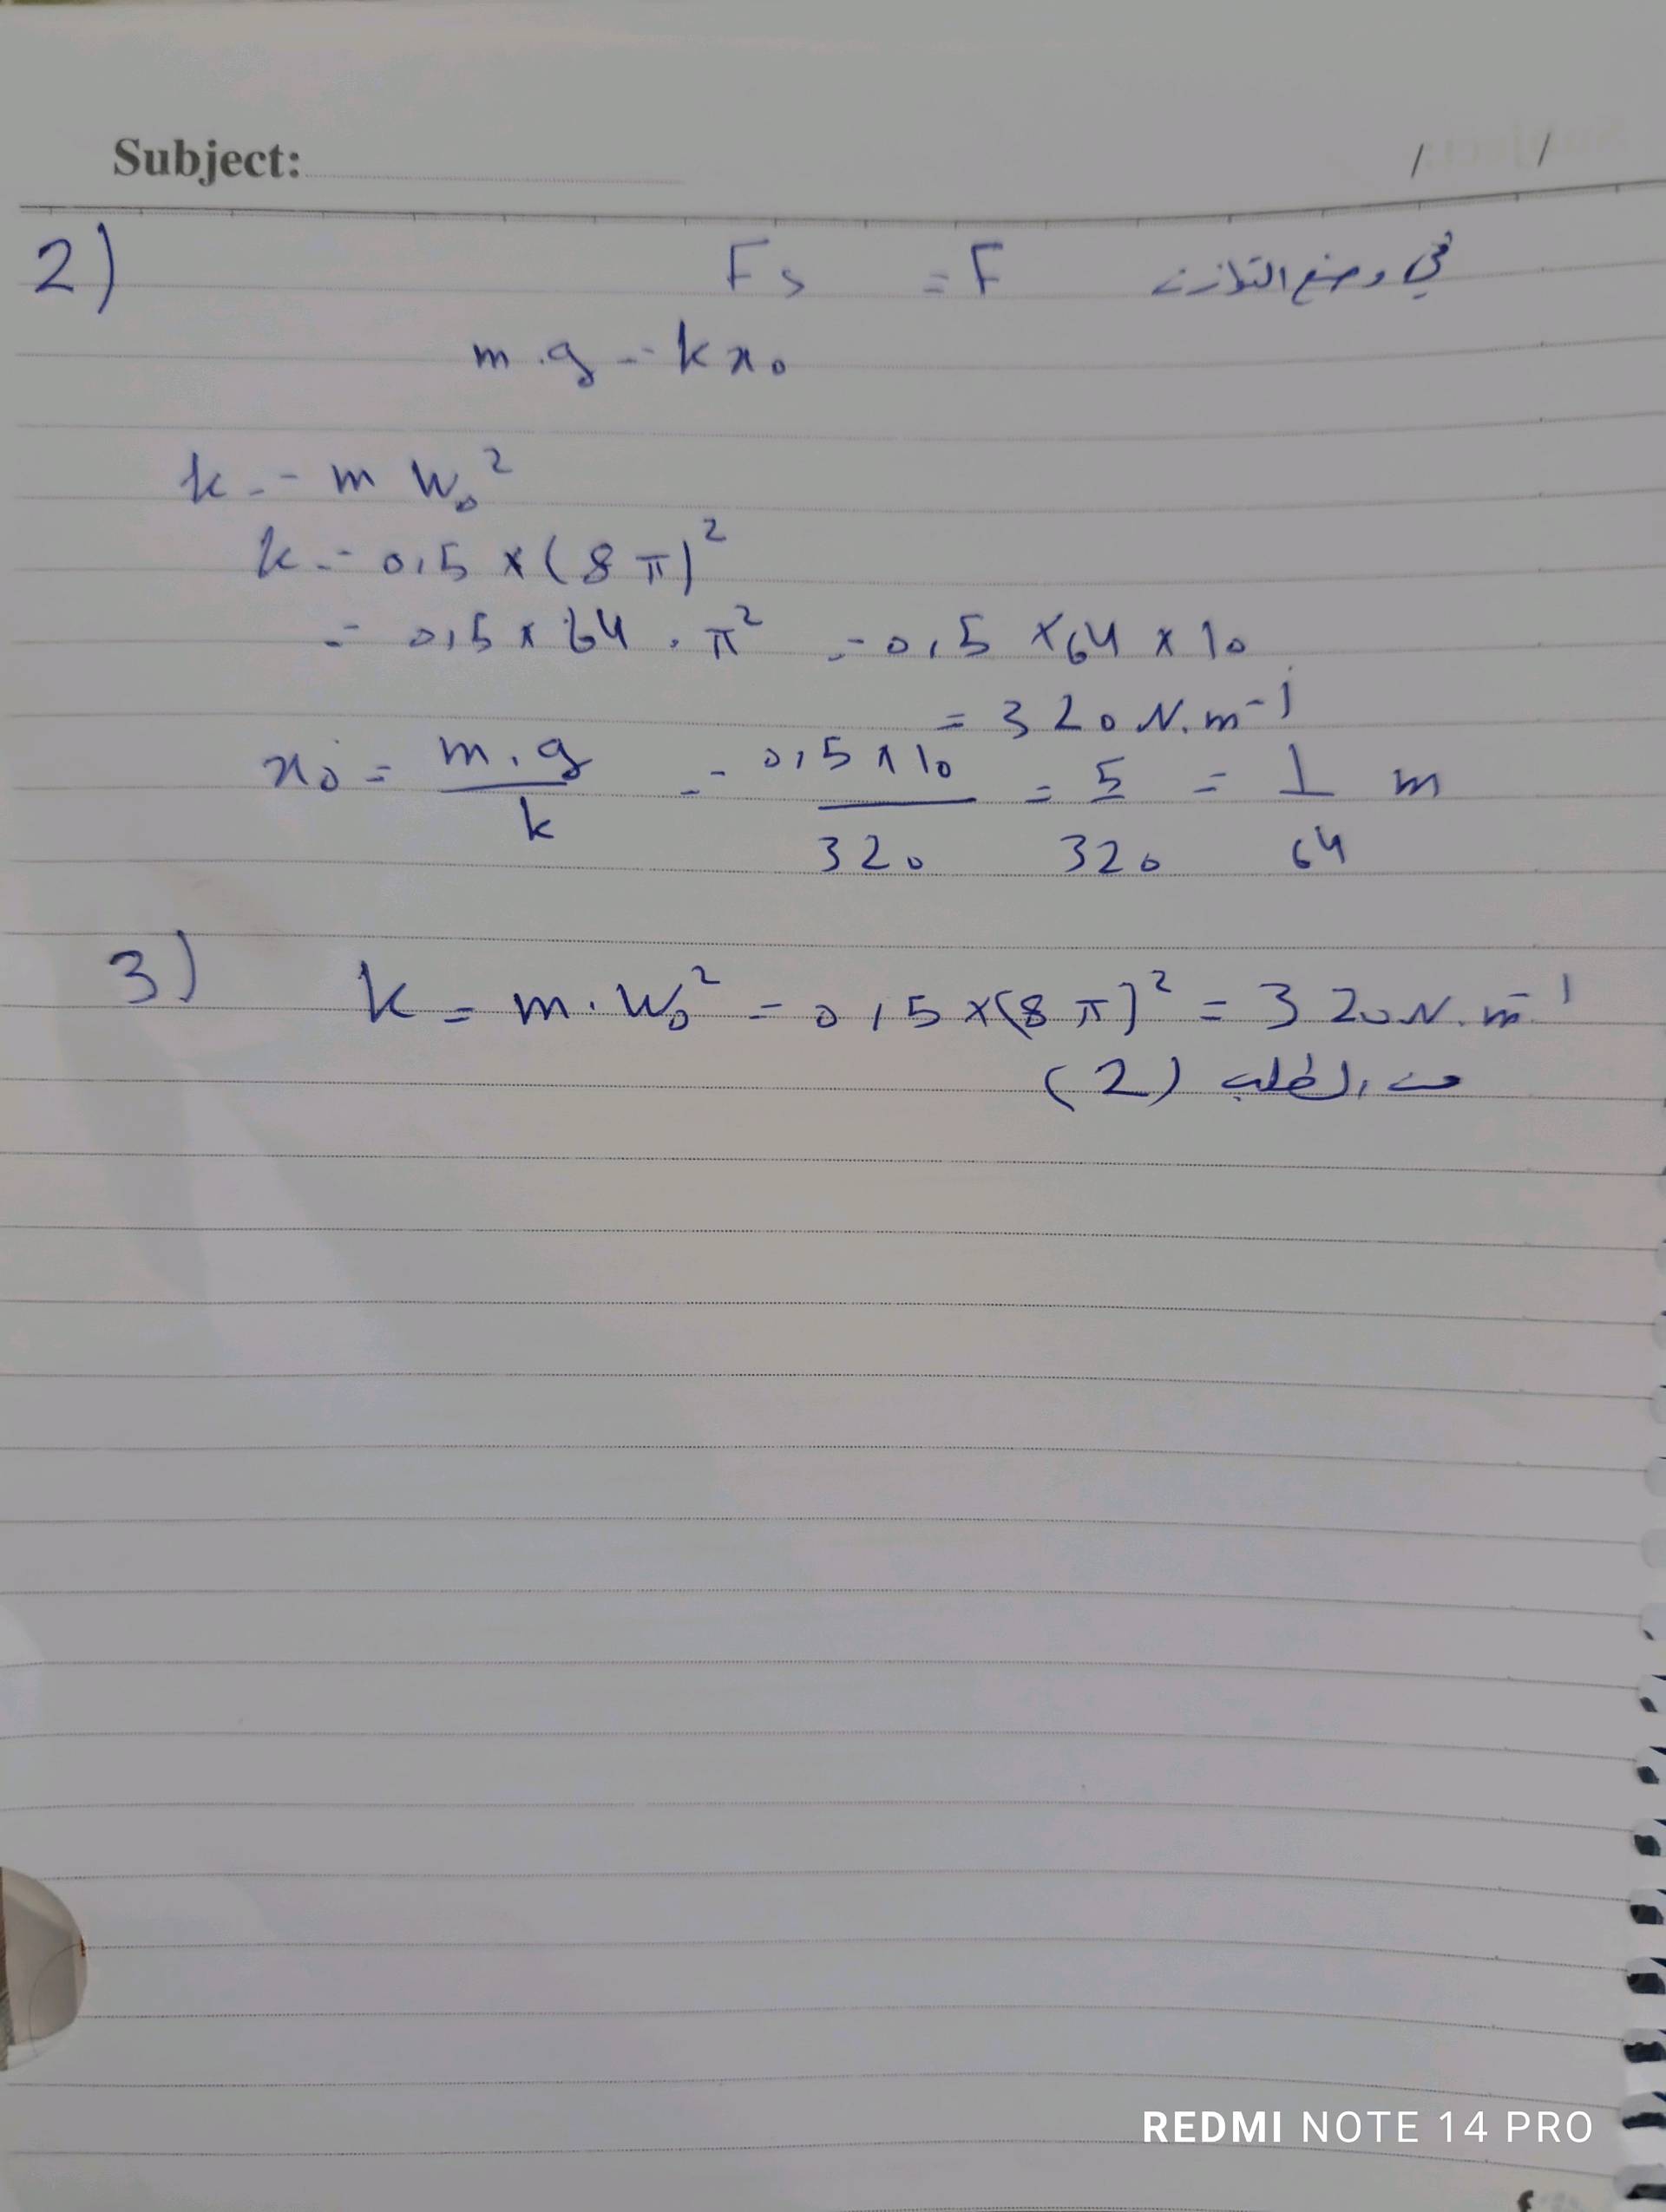 Subject: / /
2) Fs = F في وضع التوازن
m . g = k x₀
k = m W₀²
k = 0,5 × (8 π)²
= 0,5 × 64 . π² = 0,5 × 64 × 10
= 320 N.m⁻¹
x₀ = m.g/k = 0,5 × 10/320 = 5/320 = 1/64 m
3) k = m . W₀² = 0,5 × (8 π)² = 320 N.m⁻¹
من الطلب (2)
REDMI NOTE 14 PRO